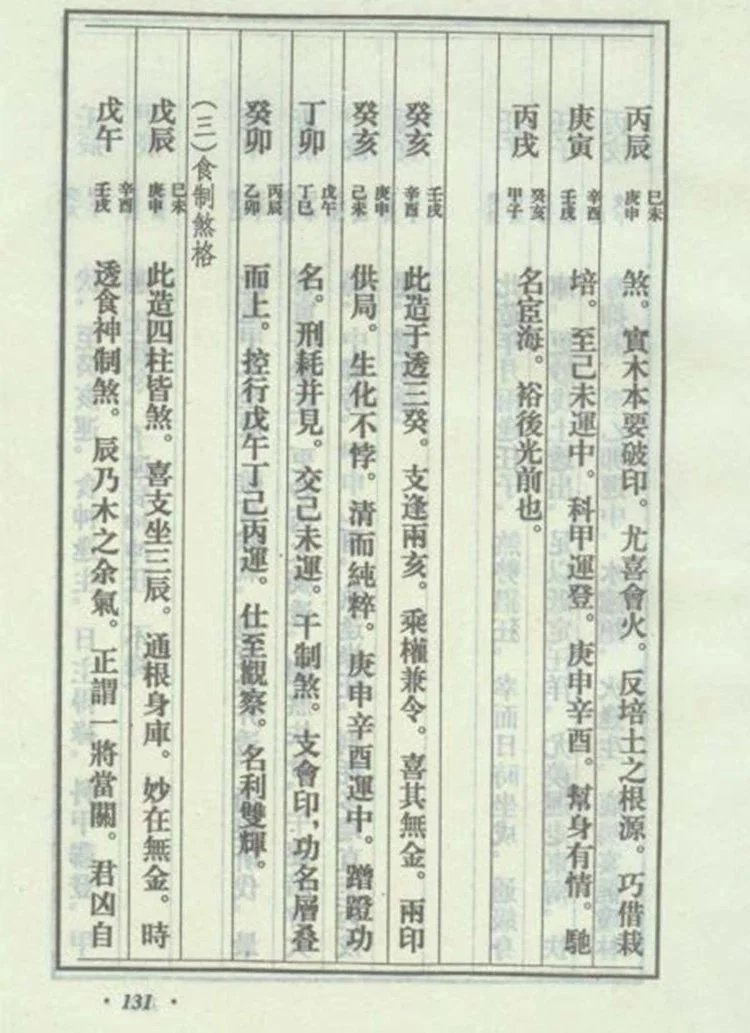 丙辰 巳未 庚申 煞。實木本要破印。尤喜會火。反培土之根源。巧借栽
庚寅 辛酉 壬戌 培。至己未運中。科甲運登。庚申辛酉。幫身有情。馳
丙戌 癸亥 甲子 名宦海。裕後光前也。
癸亥 壬戌 辛酉 此造于透三癸。支逢兩亥。乘權兼令。喜其無金。兩印
癸亥 庚申 己未 供局。生化不悖。清而純粹。庚申辛酉運中。蹭蹬功
丁卯 戊午 丁巳 名。刑耗并見。交己未運。干制煞。支會印，功名層叠
癸卯 丙辰 乙卯 而上。控行戊午丁己丙運。仕至觀察。名利雙輝。
（三）食制煞格
戊辰 巳未 庚申 此造四柱皆煞。喜支坐三辰。通根身庫。妙在無金。時
戊午 辛酉 壬戌 透食神制煞。辰乃木之余氣。正謂一將當關。君凶自
·131·